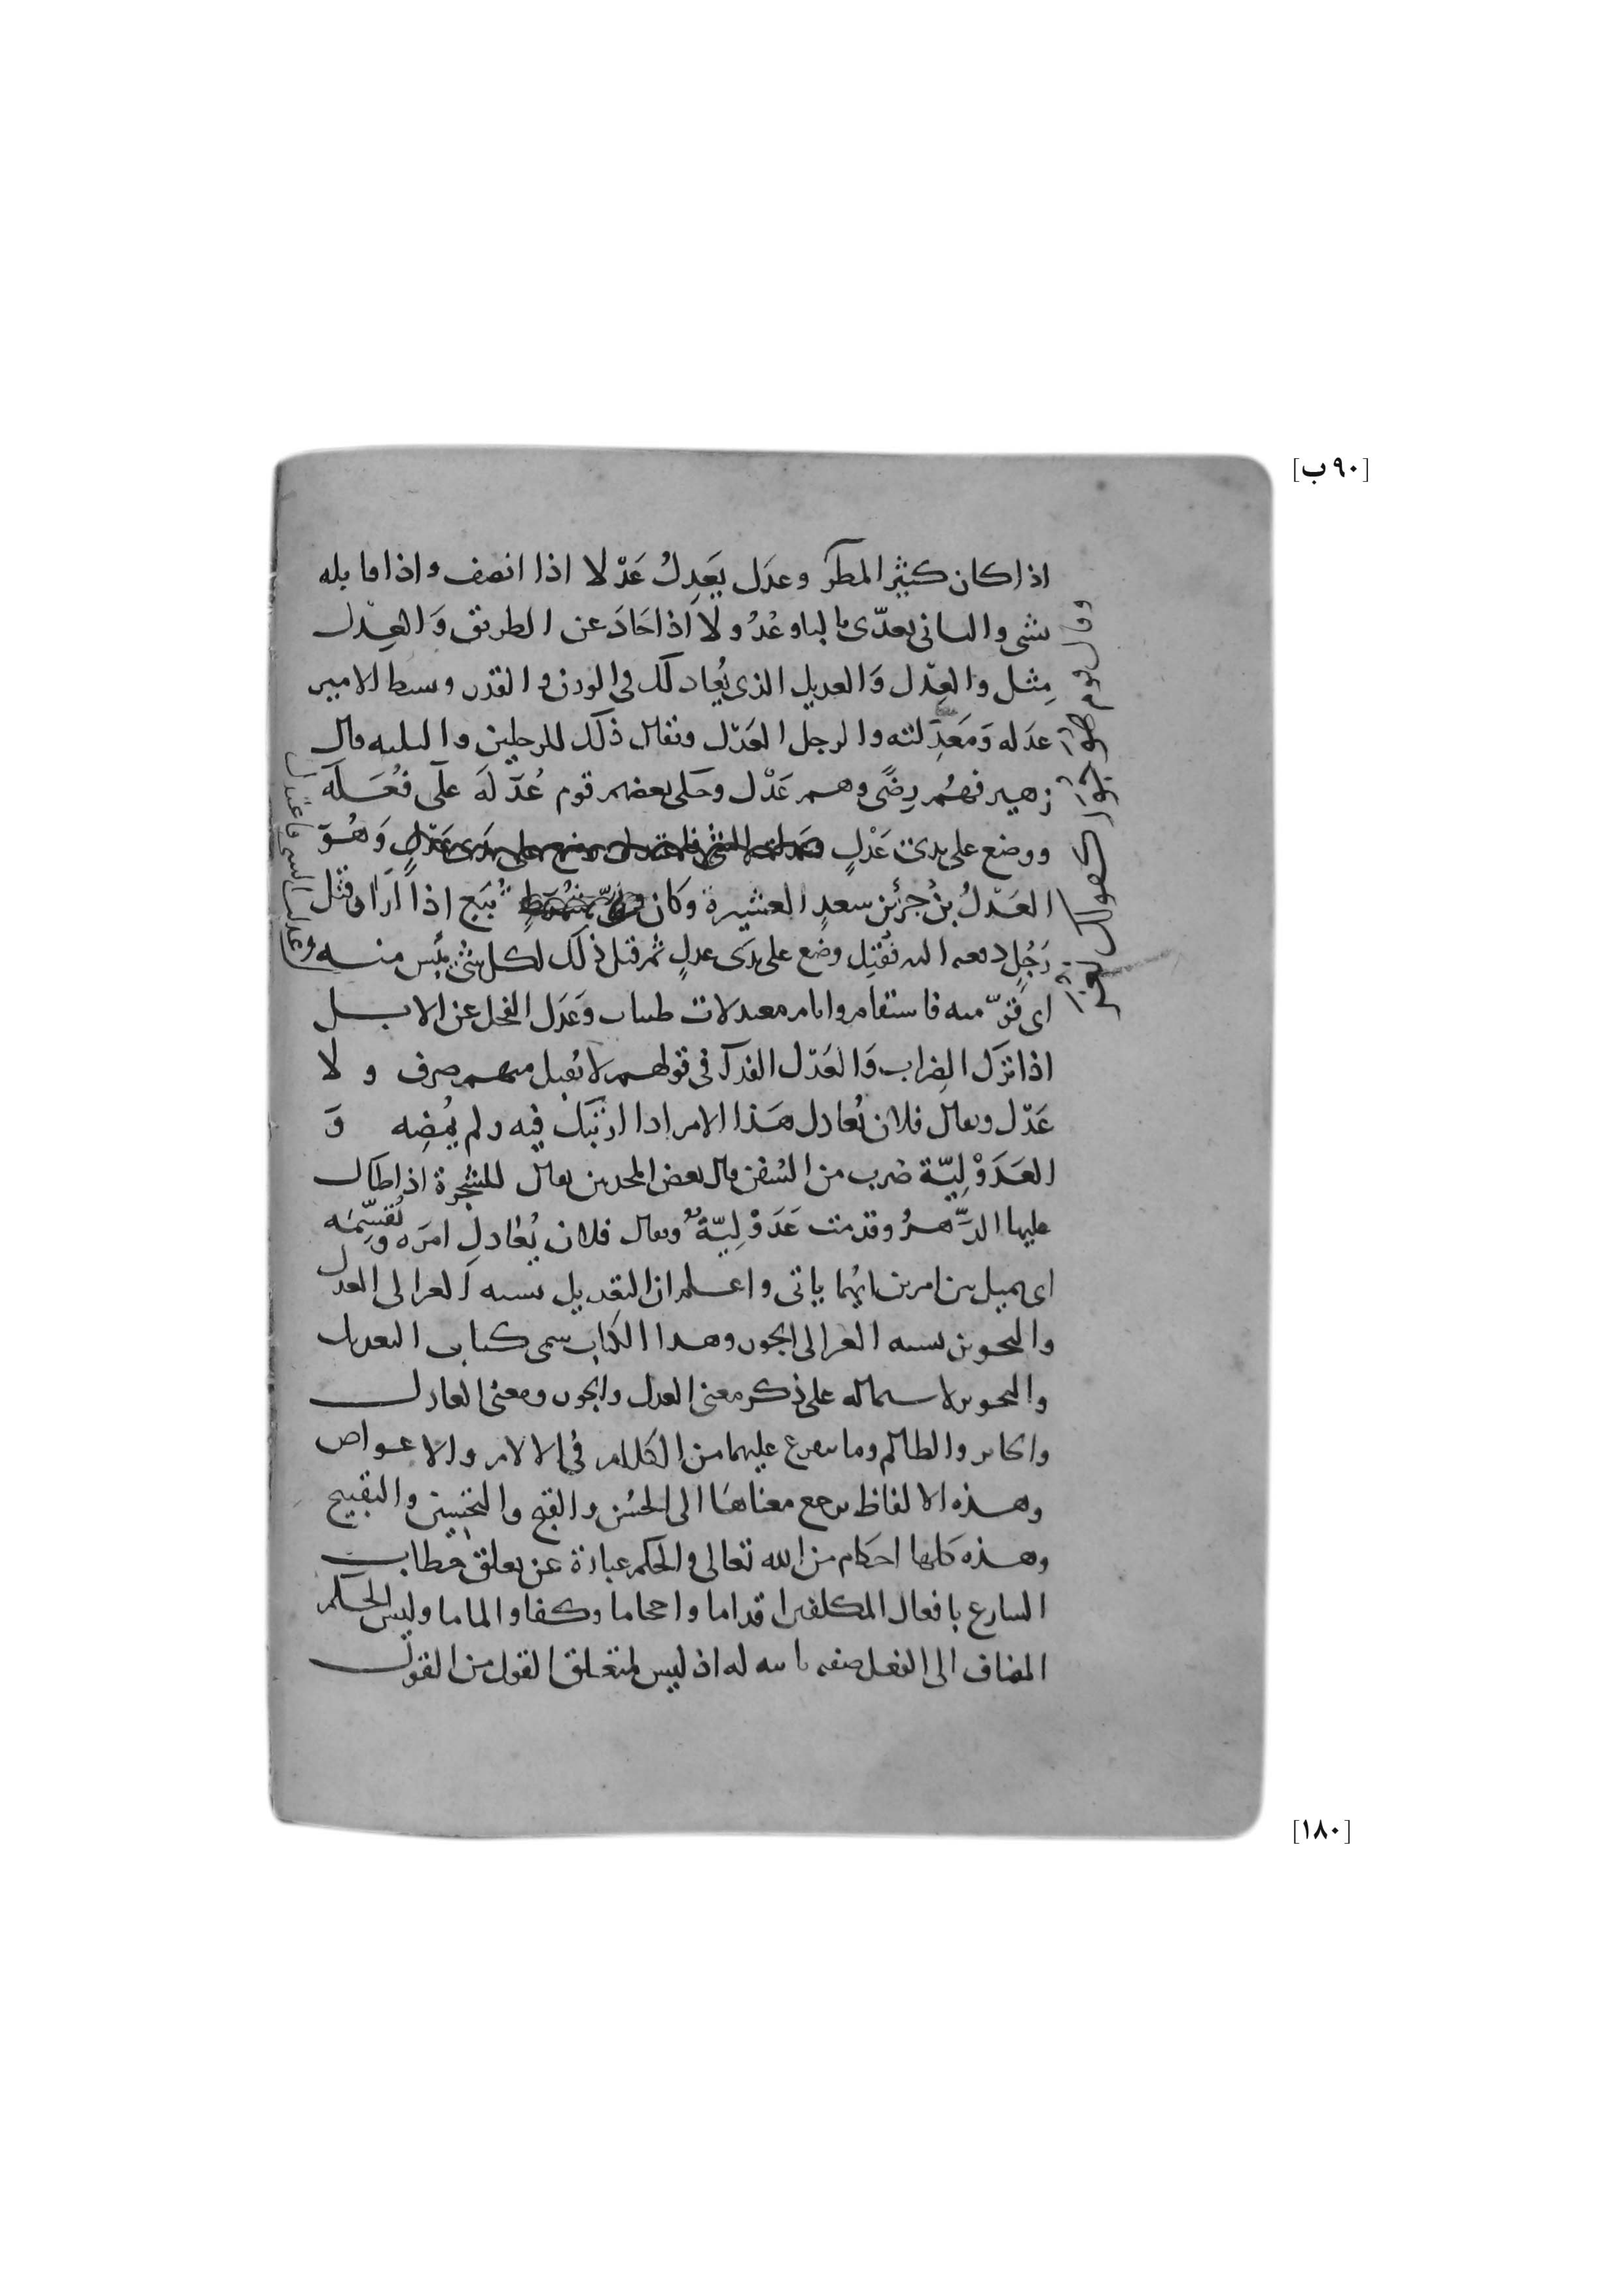 [٩٠ ب]
اذا كان كثير المطر وعدَل يَعدِلُ عَدْلا اذا انصف واذا مايله
بشى والثانى يعدّى بالبا وعُدُولًا اذا حَادَ عن الطريق وَالعِدْل
مِثل والعِدْل وَالعديل الذى يُعادلك فى الوزن والقدر وبسط الامير
عدله وَمَعدِلته والرجل العَدْل ويقال ذلك للرجلين والثلثه قال
زهير فهُم رِضًى وهم عَدْل وحكى بعضهم قوم عُدَلَة على فُعَلَة
ووضع على يدى عَدْلٍ وَهُوَ
العَدْلُ بنُ جَزْئِ بن سعدِ العشيرة وكان تُبَع اذا ارَاد قتل
رَجُلٍ دفعه اليه فيُقتِل وضع على يدَى عدلٍ ثم قيل ذلك لكل شئ يُئس منه
اى قوّمته فاستقام وايام معتدلات طيبات وَعَدَل الفحل عن الابل
اذا ترك الضِراب وَالعَدْل الفدآ فى قولهم لا يُقبل منهم صرف ولا
عَدْل ويقال فلان يُعادل هَذا الامر اذا ارتَبَك فيه ولم يُمْضِه وَ
العَدَوْلِيّة ضرب من السُفن قال بعض المحدثين يقال للشجرة اذا طال
عليها الدَّهرُ وقدمت عَدَوْلِيّةٌ ويقال فلان يُعَادل امرَه ويُقَسِّمُه
اى يميل بين امرين ايُّهما ياتى واعلم ان التعديل نسبه الغير الى العدل
والتجوير نسبه الغير الى الجور وهذا الكتاب سمى كتاب التعديل
والتجوير لاشتماله على ذكر معنى العدل والجور ومعنى العادل
والجاير والظالم وما يتفرع عليهما من الكلام فى الالام والاعواض
وهذه الالفاظ يرجع معناهَا الى الحُسْن والقبح والتحسِين والتقبيح
وهذه كلها احكام من الله تعالى والحكم عبارة عن تعلق خطاب
الشارع بافعال المكلفين اقداما واحجاما وكفا والماما وليس الحكم
المضاف الى الفعل صفه ثابته له اذ ليس لمتعلق القول من القول
وعدلت الشى فاعتدل
[١٨٠]